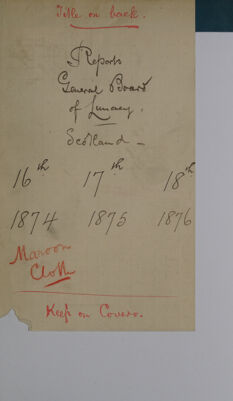 Title on back.
Reports
General Board
of Lunacy.
Scotland —
16th 17th 18th
1874 1875 1876
Maroon
Cloth
Keep on Covers.